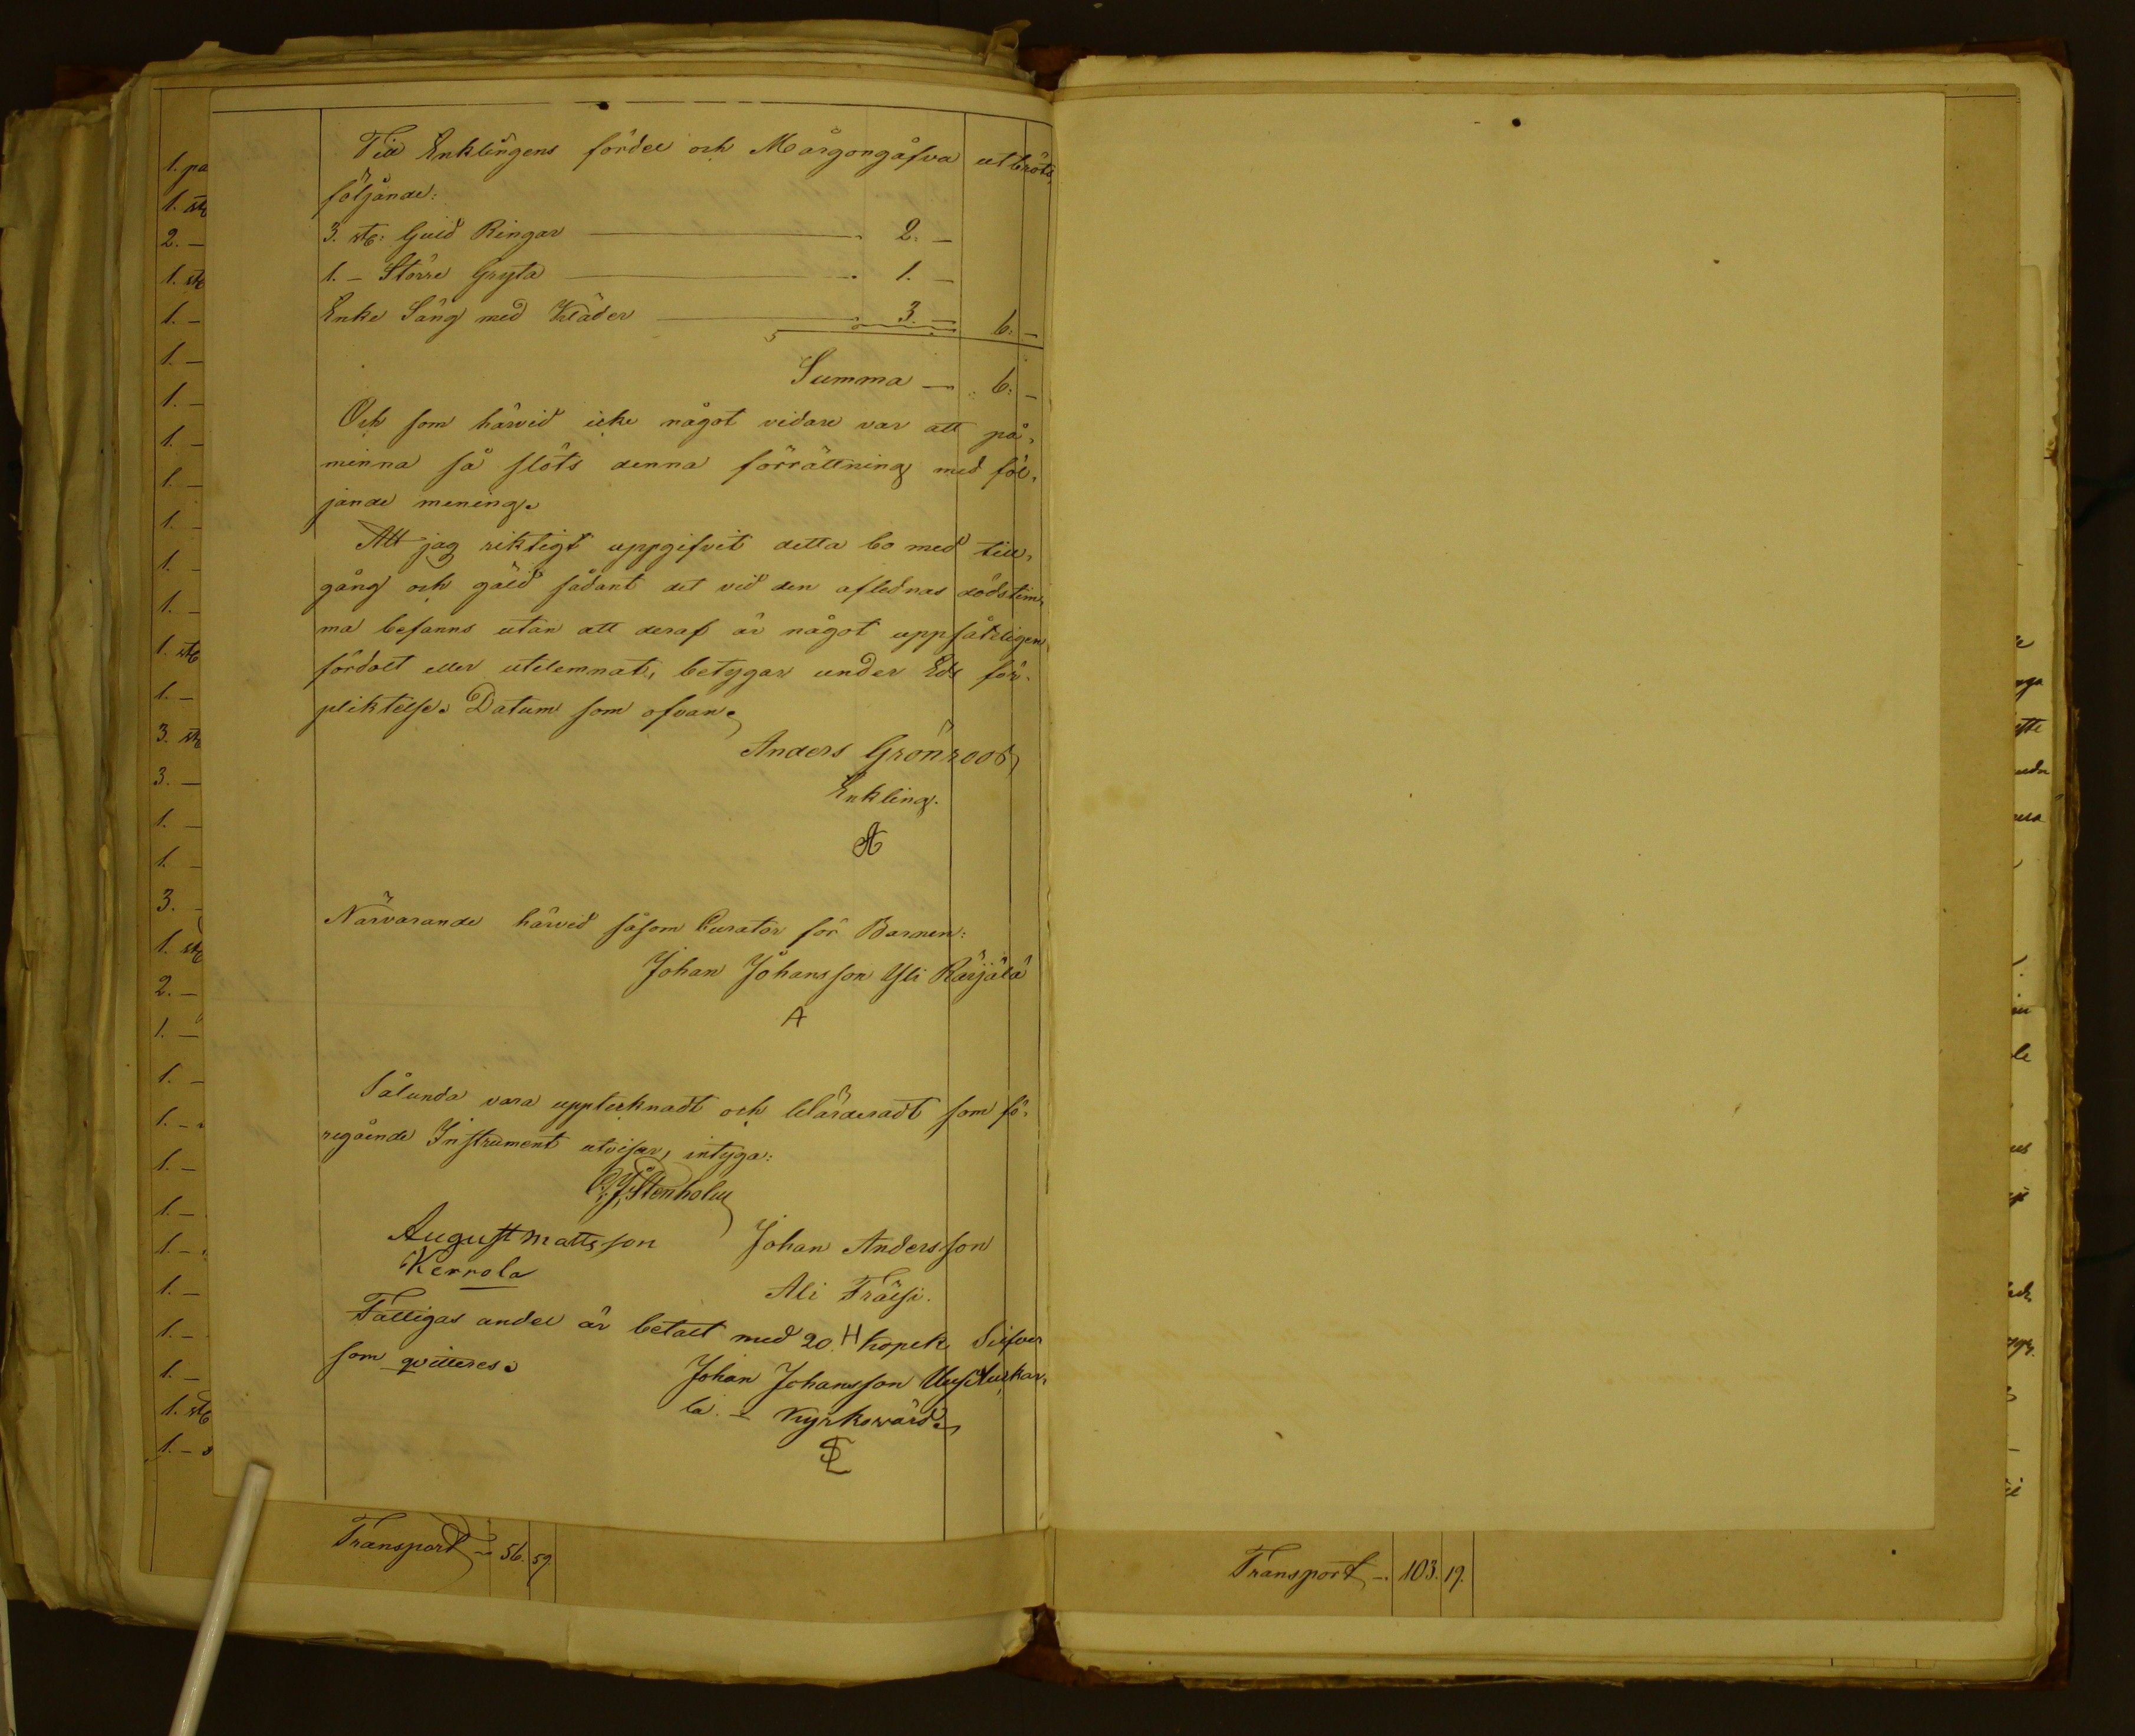 Till Enklingens fördel och Morgongåfva utbröts
följande:
3. st: Guld Ringar 2. —
1. — Större Gryta 1. —
Enke Säng med Kläder 3. — 6. —
Summa — 6. —
Och som härvid icke något vidare var att på-
minna så slöts denna förrättning med föl-
jande mening.
Att jag riktigt uppgifvit detta bo med till-
gång och gäld sådant det vid den aflednas dödstim-
ma befanns utan att deraf är något uppsåteligen
fördolt eller utelemnat, betygar under Eds för-
pliktelse. Datum som ofvan.
Anders Grönroos
Enkling.
Närvarande härvid såsom Curator för Barnen:
Johan Johansson Yli Räijälä
A
Sålunda vara upptecknadt och Värderadt som fö-
regående Instrument utvisar, intyga:
Stenholm
August Mattsson Johan Andersson
Kerrola
Ali Fräisi.
Fattigas andel är betalt med 20. kopek Silfver
som qvitteres.
Johan Johansson
la. — Kyrkovärd.
Transport — 56. 59.
Transport — 103. 19.
1. pa
1. st
2. —
1. st
1. —
1. —
1. —
1. —
1. —
1. —
1. —
1. —
1. st
1. —
3. st
3. —
1. —
1. —
3. —
1. st
2. —
1. —
1. —
1. —
1. —
1. —
1. —
1. —
1. —
1. —
1. st
1. —